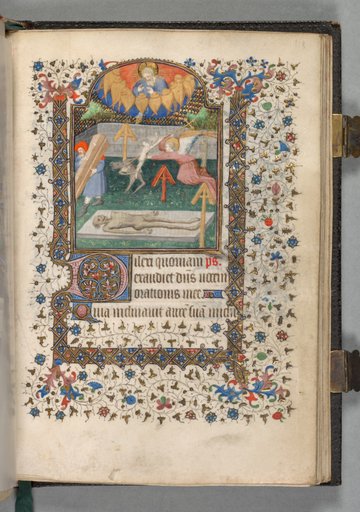 Dilexi quoniam ps.
exaudiet dns vocem
orationis mee
Quia inclinauit aurē suā michi